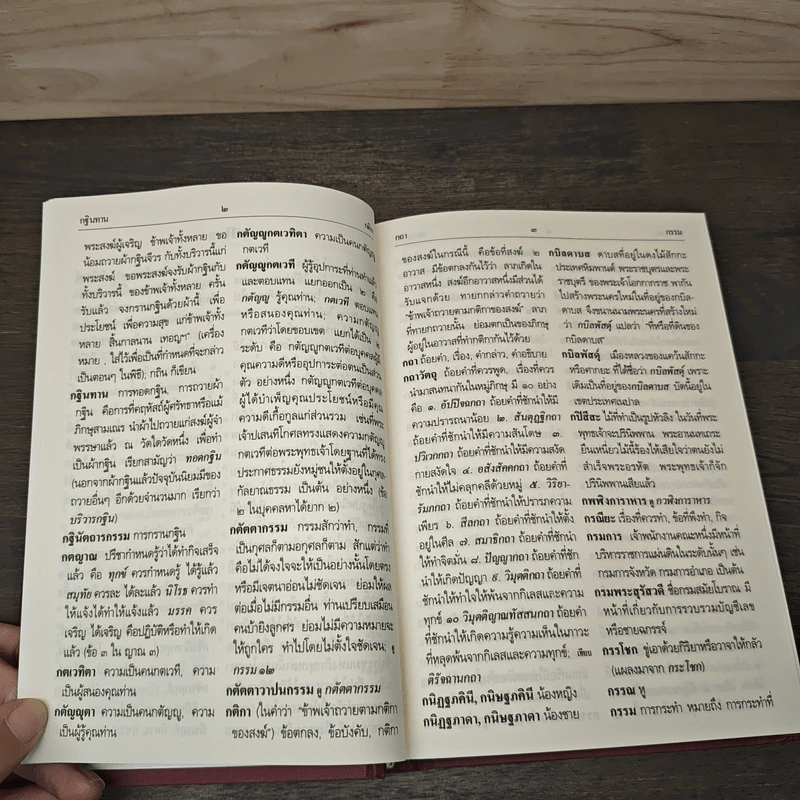 กฐินทาน
๒
พระสงฆ์ผู้เจริญ ข้าพเจ้าทั้งหลาย ขอ
น้อมถวายผ้ากฐินจีวร กับทั้งบริวารนี้แก่
พระสงฆ์ ขอพระสงฆ์จงรับผ้ากฐินกับ
ทั้งบริวารนี้ ของข้าพเจ้าทั้งหลาย ครั้น
รับแล้ว จงกรานกฐินด้วยผ้านี้ เพื่อ
ประโยชน์ เพื่อความสุข แก่ข้าพเจ้าทั้ง
หลาย สิ้นกาลนาน เทอญฯ" (เครื่อง
หมาย , ใส่ไว้เพื่อเป็นที่กำหนดที่จะกล่าว
เป็นตอนๆ ในพิธี); กถิน ก็เขียน
กฐินทาน การทอดกฐิน, การถวายผ้า
กฐิน คือการที่คฤหัสถ์ผู้ศรัทธาหรือแม้
ภิกษุสามเณร นำผ้าไปถวายแก่สงฆ์ผู้จำ
พรรษาแล้ว ณ วัดใดวัดหนึ่ง เพื่อทำ
เป็นผ้ากฐิน เรียกสามัญว่า ทอดกฐิน
(นอกจากผ้ากฐินแล้วปัจจุบันนิยมมีของ
ถวายอื่นๆ อีกด้วยจำนวนมาก เรียกว่า
บริวารกฐิน)
กฐินัตถารกรรม การกรานกฐิน
กตญาณ ปรีชากำหนดรู้ว่าได้ทำกิจเสร็จ
แล้ว คือ ทุกข์ ควรกำหนดรู้ ได้รู้แล้ว
สมุทัย ควรละ ได้ละแล้ว นิโรธ ควรทำ
ให้แจ้งได้ทำให้แจ้งแล้ว มรรค ควร
เจริญ ได้เจริญ คือปฏิบัติหรือทำให้เกิด
แล้ว (ข้อ 3 ใน ญาณ ๓)
กตเวทิตา ความเป็นคนกตเวที, ความ
เป็นผู้สนองคุณท่าน
กตัญญุตา ความเป็นคนกตัญญู, ความ
เป็นผู้รู้คุณท่าน
กตัญญูกตเวทิตา ความเป็นคนกตัญญู
กตเวที
กตัญญูกตเวที ผู้รู้อุปการะที่ท่านทำแล้ว
และตอบแทน แยกออกเป็น ๒ คือ
กตัญญู รู้คุณท่าน; กตเวที ตอบแทน
หรือสนองคุณท่าน; ความกตัญญู
กตเวทีว่าโดยขอบเขต แยกได้เป็น ๒
ระดับ คือ กตัญญูกตเวทีต่อบุคคลผู้มี
คุณความดีหรืออุปการะต่อตนเป็นส่วน
ตัว อย่างหนึ่ง กตัญญูกตเวทีต่อบุคคล
ผู้ได้บำเพ็ญคุณประโยชน์หรือมีคุณ
ความดีเกื้อกูลแก่ส่วนรวม เช่นที่พระ
เจ้าปเสนทิโกศลทรงแสดงความกตัญญู
กตเวทีต่อพระพุทธเจ้าโดยฐานที่ได้ทรง
ประกาศธรรมยังหมู่ชนให้ตั้งอยู่ในกุศล-
กัลยาณธรรม เป็นต้น อย่างหนึ่ง (ข้อ
๒ ในบุคคลหาได้ยาก ๒)
กตัตตากรรม กรรมสักว่าทำ, กรรมที่
เป็นกุศลก็ตามอกุศลก็ตาม สักแต่ว่าทำ
คือไม่ได้จงใจจะให้เป็นอย่างนั้นโดยตรง
หรือมีเจตนาอ่อนไม่ชัดเจน ย่อมให้ผล
ต่อเมื่อไม่มีกรรมอื่น ท่านเปรียบเสมือน
คนบ้ายิงลูกศร ย่อมไม่มีความหมายจะ
ให้ถูกใคร ทำไปโดยไม่ตั้งใจชัดเจน; ดู
กรรม ๑๒
กตัตตาวาปนกรรม ดู กตัตตากรรม
กติกา (ในคำว่า "ข้าพเจ้าถวายตามกติกา
ของสงฆ์") ข้อตกลง, ข้อบังคับ, กติกา
กถา
๓
กรรม
ของสงฆ์ในกรณีนี้ คือข้อที่สงฆ์ ๒
อาวาส มีข้อตกลงกันไว้ว่า ลาภเกิดใน
อาวาสหนึ่ง สงฆ์อีกอาวาสหนึ่งมีส่วนได้
รับแจกด้วย ทายกกล่าวคำถวายว่า
"ข้าพเจ้าถวายตามกติกาของสงฆ์" ลาภ
ที่ทายกถวายนั้น ย่อมตกเป็นของภิกษุ
ผู้อยู่ในอาวาสที่ทำกติกากันไว้ด้วย
กถา ถ้อยคำ, เรื่อง, คำกล่าว, คำอธิบาย
กถาวัตถุ ถ้อยคำที่ควรพูด, เรื่องที่ควร
นำมาสนทนากันในหมู่ภิกษุ มี ๑๐ อย่าง
คือ ๑. อัปปิจฉกถา ถ้อยคำที่ชักนำให้มี
ความปรารถนาน้อย ๒. สันตุฏฐิกถา
ถ้อยคำที่ชักนำให้มีความสันโดษ ๓.
ปวิเวกกถา ถ้อยคำที่ชักนำให้มีความสงัด
กายสงัดใจ ๔. อสังสัคคกถา ถ้อยคำที่
ชักนำให้ไม่คลุกคลีด้วยหมู่ ๕. วิริยา-
รัมภกถา ถ้อยคำที่ชักนำให้ปรารภความ
เพียร ๖. สีลกถา ถ้อยคำที่ชักนำให้ตั้ง
อยู่ในศีล ๗. สมาธิกถา ถ้อยคำที่ชักนำ
ให้ทำจิตมั่น ๘. ปัญญากถา ถ้อยคำที่ชัก
นำให้เกิดปัญญา ๙. วิมุตติกถา ถ้อยคำที่
ชักนำให้ทำใจให้พ้นจากกิเลสและความ
ทุกข์ ๑๐ วิมุตติญาณทัสสนกถา ถ้อยคำ
ที่ชักนำให้เกิดความรู้ความเห็นในภาวะ
ที่หลุดพ้นจากกิเลสและความทุกข์; เทียบ
ติรัจฉานกถา
กนิฏฐภคินี, กนิษฐภคินี น้องหญิง
กนิฏฐภาดา, กนิษฐภาดา น้องชาย
กบิลดาบส ดาบสที่อยู่ในดงไม้สักกะ
ประเทศหิมพานต์ พระราชบุตรและพระ
ราชบุตรี ของพระเจ้าโอกกากราช พากัน
ไปสร้างพระนครใหม่ในที่อยู่ของกบิล-
ดาบส จึงขนานนามพระนครที่สร้างใหม่
ว่า กบิลพัสดุ์ แปลว่า "ที่หรือที่ดินของ
กบิลดาบส"
กบิลพัสดุ์ เมืองหลวงของแคว้นสักกะ
หรือศากยะ ที่ได้ชื่อว่า กบิลพัสดุ์ เพราะ
เดิมเป็นที่อยู่ของกบิลดาบส บัดนี้อยู่ใน
เขตประเทศเนปาล
กปิสีสะ ไม้ที่ทำเป็นรูปหัวลิง ในวันที่พระ
พุทธเจ้าจะปรินิพพาน พระอานนทเถระ
ยืนเหนี่ยวไม้นี้ร้องไห้เสียใจว่าตนยังไม่
สำเร็จพระอรหัต พระพุทธเจ้าก็จัก
ปรินิพพานเสียแล้ว
กพฬิงการาหาร ดู กวฬิงการาหาร
กรณียะ เรื่องที่ควรทำ, ข้อที่พึงทำ, กิจ
กรมการ เจ้าพนักงานคณะหนึ่งมีหน้าที่
บริหารราชการแผ่นดินในระดับนั้นๆ เช่น
กรมการจังหวัด กรมการอำเภอ เป็นต้น
กรมพระสุรัสวดี ชื่อกรมสมัยโบราณ มี
หน้าที่เกี่ยวกับการรวบรวมบัญชีเลก
หรือชายฉกรรจ์
กรรโชก ขู่เอาด้วยกิริยาหรือวาจาให้กลัว
(แผลงมาจาก กระโชก)
กรรณ หู
กรรม การกระทำ หมายถึง การกระทำที่